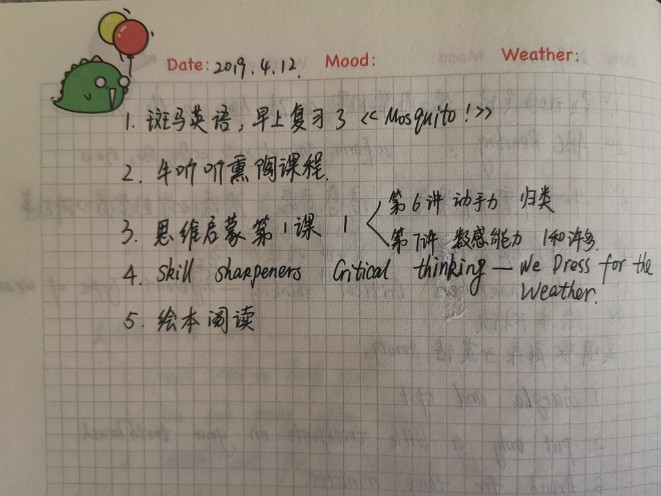 Date: 2019.4.12. Mood: Weather:
1. 斑马英语，早上复习了《Mosquito!》
2. 牛听听熏陶课程.
第6讲 动手力 归类
3. 思维启蒙第1课 1
第7讲 数感能力 1和许多.
4. Skill sharpeners Critical thinking — We Dress for the
Weather.
5. 绘本阅读